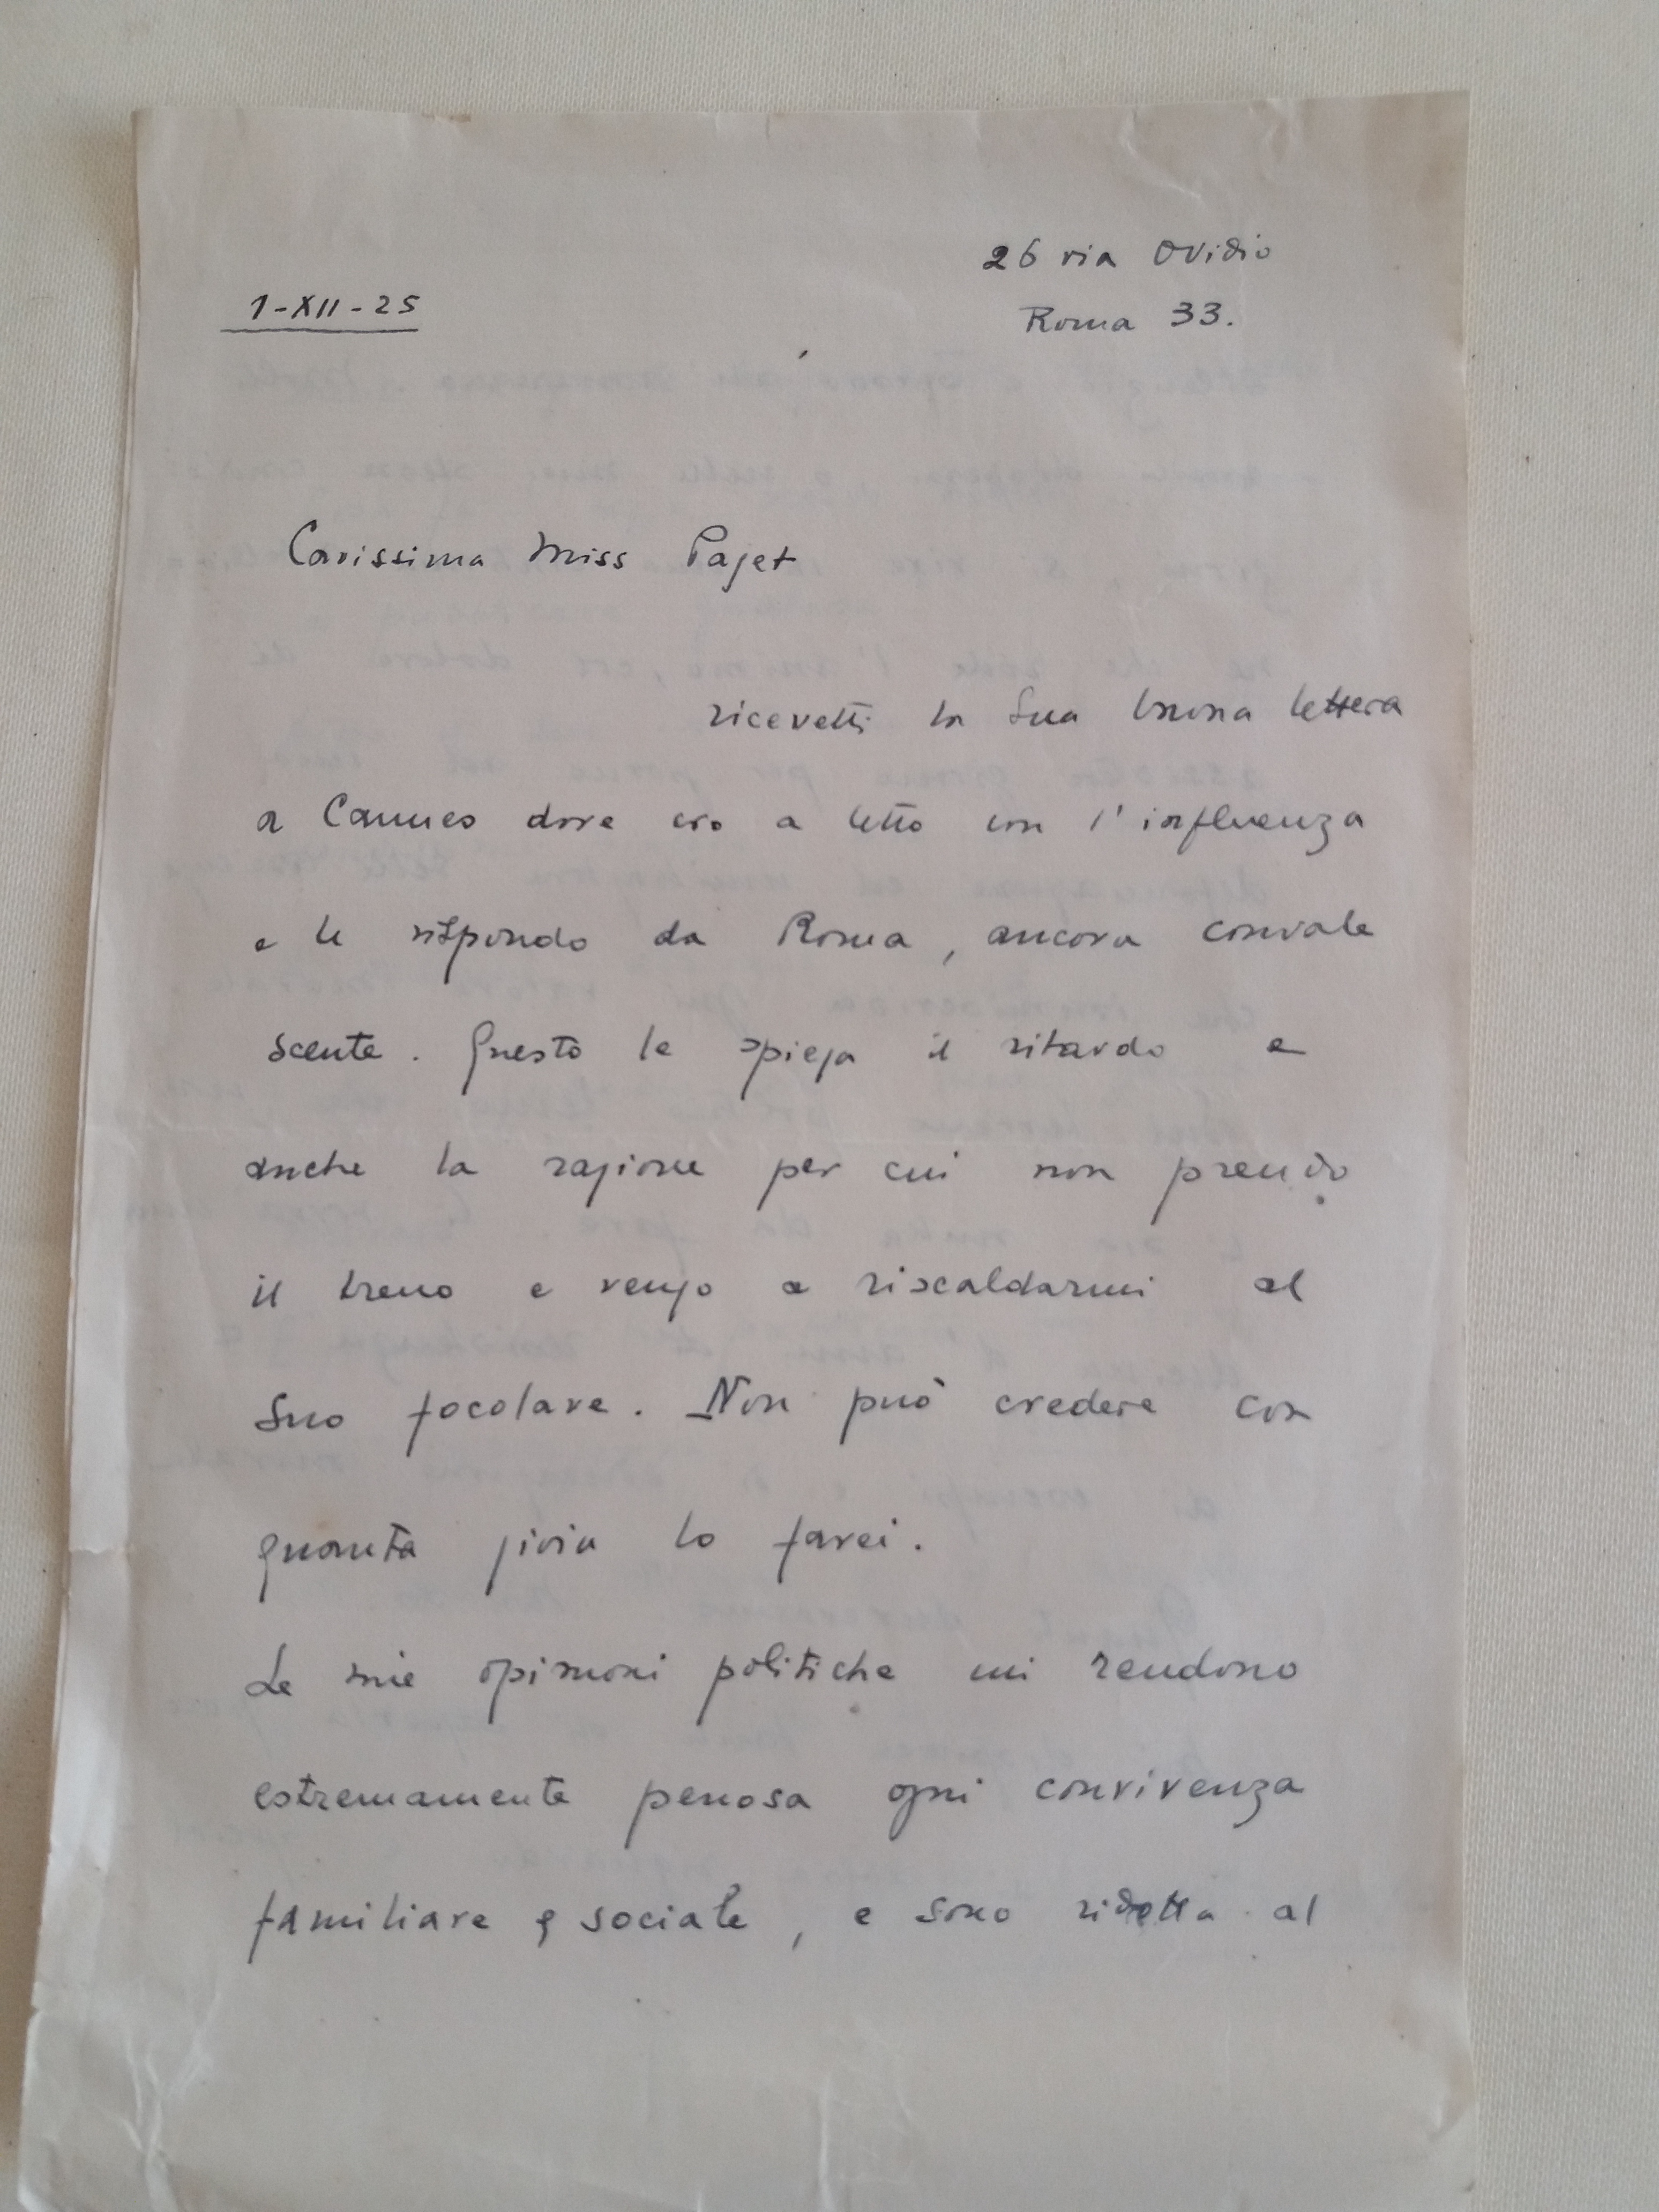 26 via Ovidio
1-XII-25
Roma 33.
Carissima Miss Paget
ricevetti la Sua buona lettera
a Cannes dove ero a letto con l'influenza
e le rispondo da Roma, ancora convale
scente. Questo le spiega il ritardo e
anche la ragione per cui non prendo
il treno e vengo a riscaldarmi al
Suo focolare. Non può credere con
quanta gioia lo farei.
Le mie opinioni politiche mi rendono
estremamente penosa ogni convivenza
familiare e sociale, e sono ridotta al